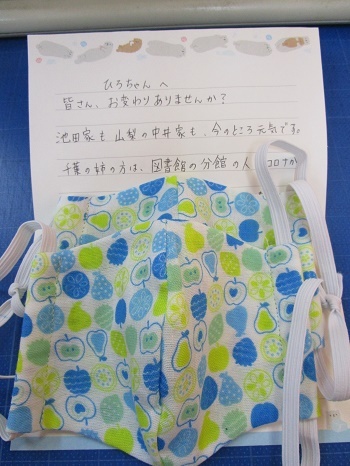 ひろちゃんへ
皆さん、お変わりありませんか？
池田家も山梨の中井家も、今のところ元気です。
千葉の姉の方は、図書館の分館の人 コロナか